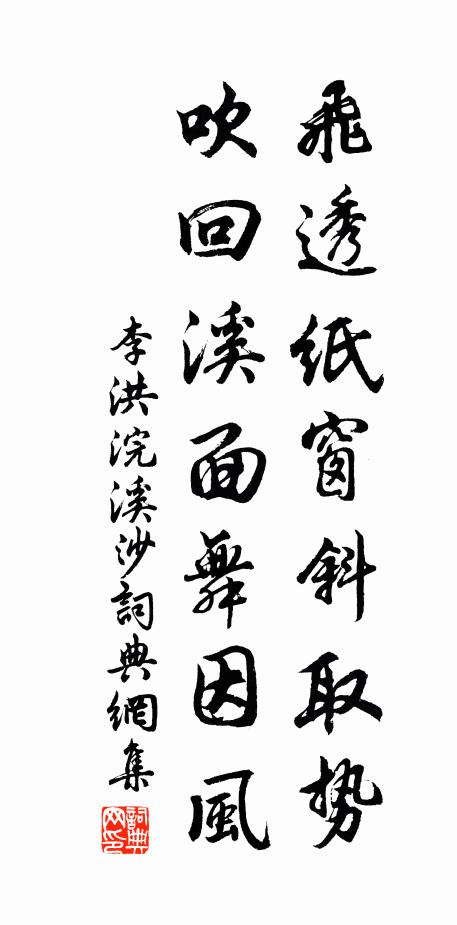 飛透紙窗斜取勢
吹回溪面舞因風
李洪浣溪沙詞典網集
詞典網印